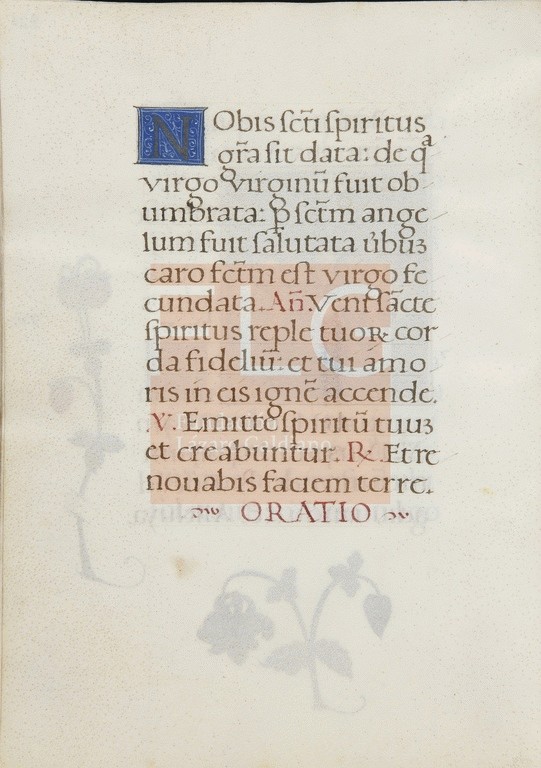 NObis sc̃ti spiritus
gr̃a sit data: de qᵃ
virgo virginũ fuit ob
umbrata: ꝑ sc̃tm ange
lum fuit salutata ũbuꝫ
caro fc̃tm est virgo fe
cundata. Añ. Veni sãcte
spiritus reple tuoꝝ cor
da fideliũ: et tui amo
ris in eis ignẽ accende.
.V. Emitte spiritũ tuuꝫ
et creabuntur. ℞. Et re
novabis faciem terre.
ORATIO
FLG
Lázaro Galdiano